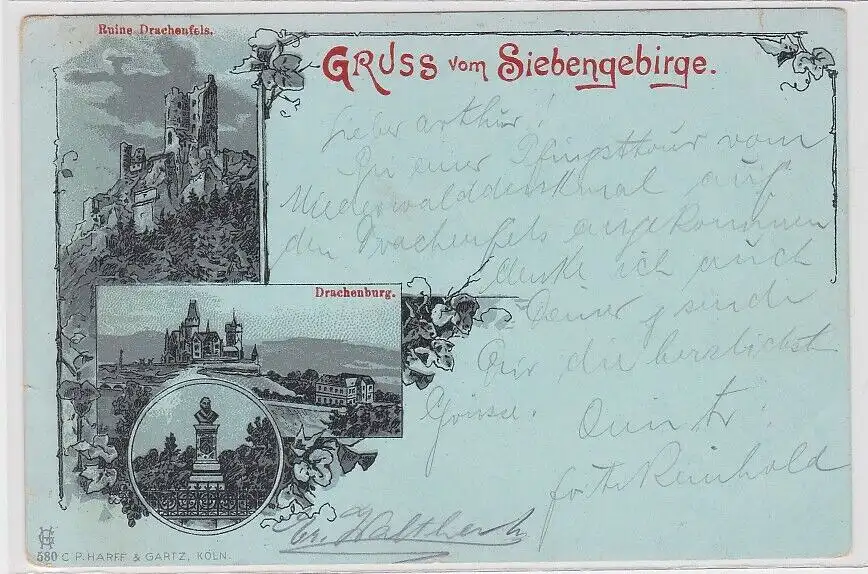 Ruine Drachenfels.
Gruss vom Siebengebirge.
Lieber Arthur!
Bei einer Pfingsttour vom
Niederwalddenkmal auf
den Drachenfels angekommen
denke ich auch
Deiner & sende
Dir die herzlichst
Grüsse.
Drachenburg.
Reinhold
580 C P. HARFF & GARTZ, KÖLN.